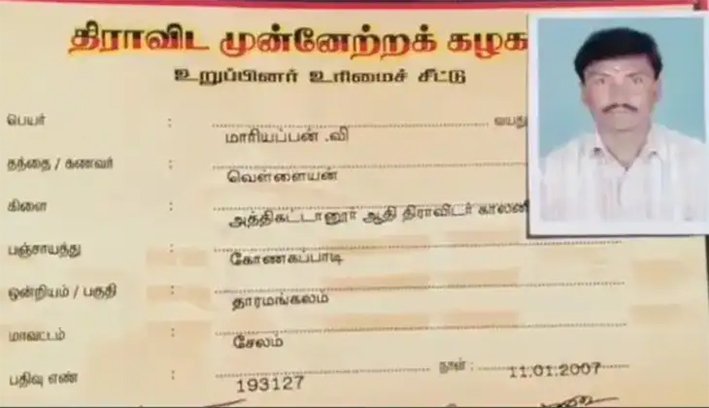 திராவிட முன்னேற்றக் கழக
உறுப்பினர் உரிமைச் சீட்டு
பெயர் : மாரியப்பன் .வி வயது
தந்தை / கணவர் : வெள்ளையன்
கிளை : அத்திகட்டானூர் ஆதி திராவிடர் காலனி
பஞ்சாயத்து : கோணகப்பாடி
ஒன்றியம் / பகுதி : தாரமங்கலம்
மாவட்டம் : சேலம்
பதிவு எண் : 193127 நாள் : 11.01.2007